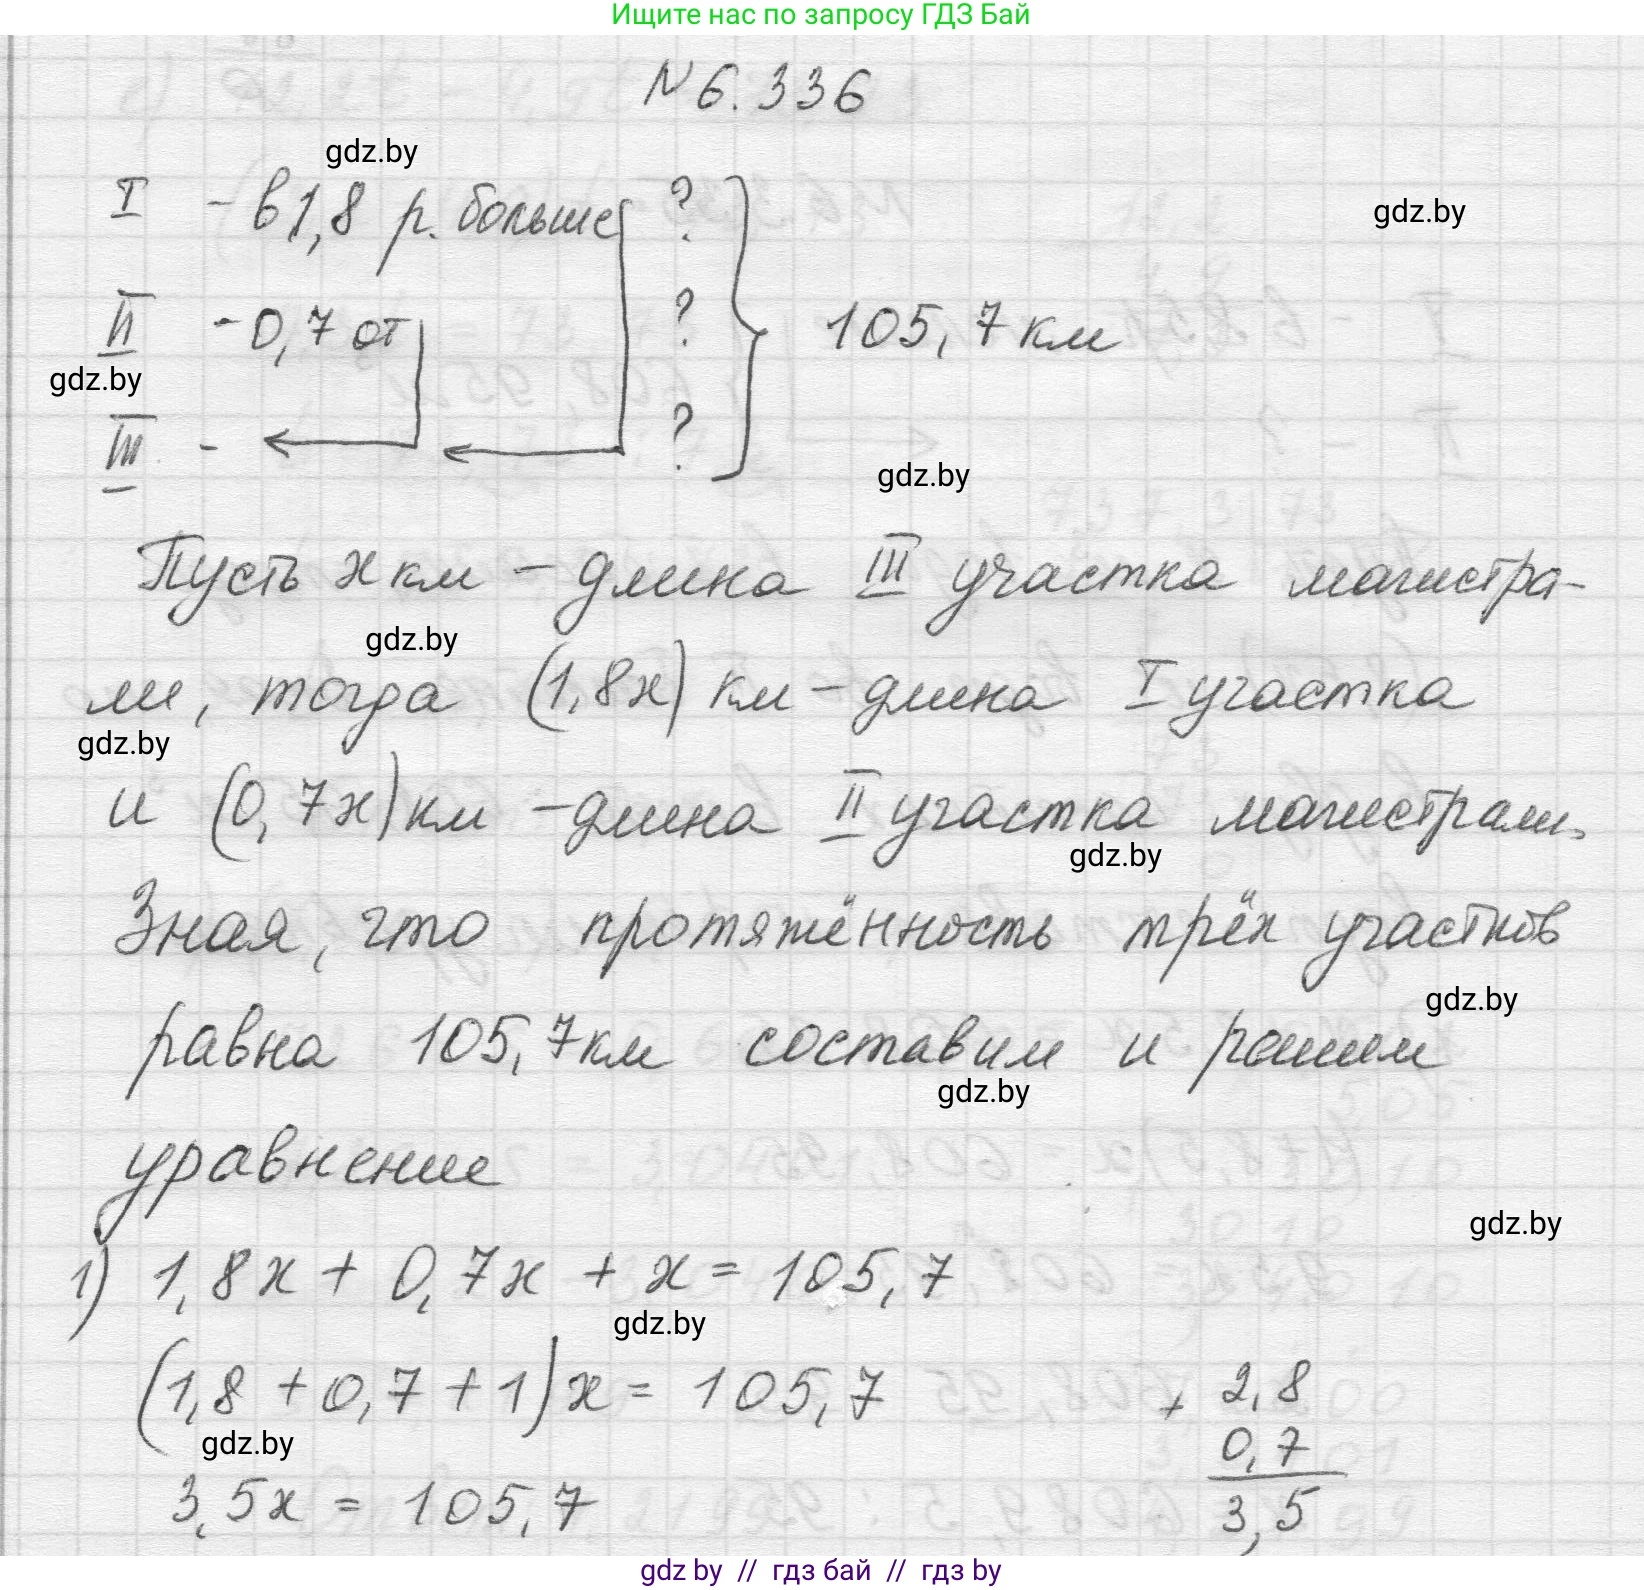 Ищите нас по запросу ГДЗ Бай
N 6.336
gdz.by
I - в 1,8 р. больше ?
gdz.by
II - 0,7 от ? 105,7 км
gdz.by
III - ?
gdz.by
Пусть x км - длина III участка магистра-
gdz.by
ли, тогда (1,8x) км - длина I участка
gdz.by
и (0,7x) км - длина II участка магистрали.
gdz.by
Зная, что протяжённость трёх участков
gdz.by
равна 105,7 км составим и решим
gdz.by
уравнение
gdz.by
1) 1,8x + 0,7x + x = 105,7
gdz.by
(1,8 + 0,7 + 1)x = 105,7
+ 2,8
0,7
gdz.by
3,5x = 105,7
3,5
gdz by // гдз бай // гдз by